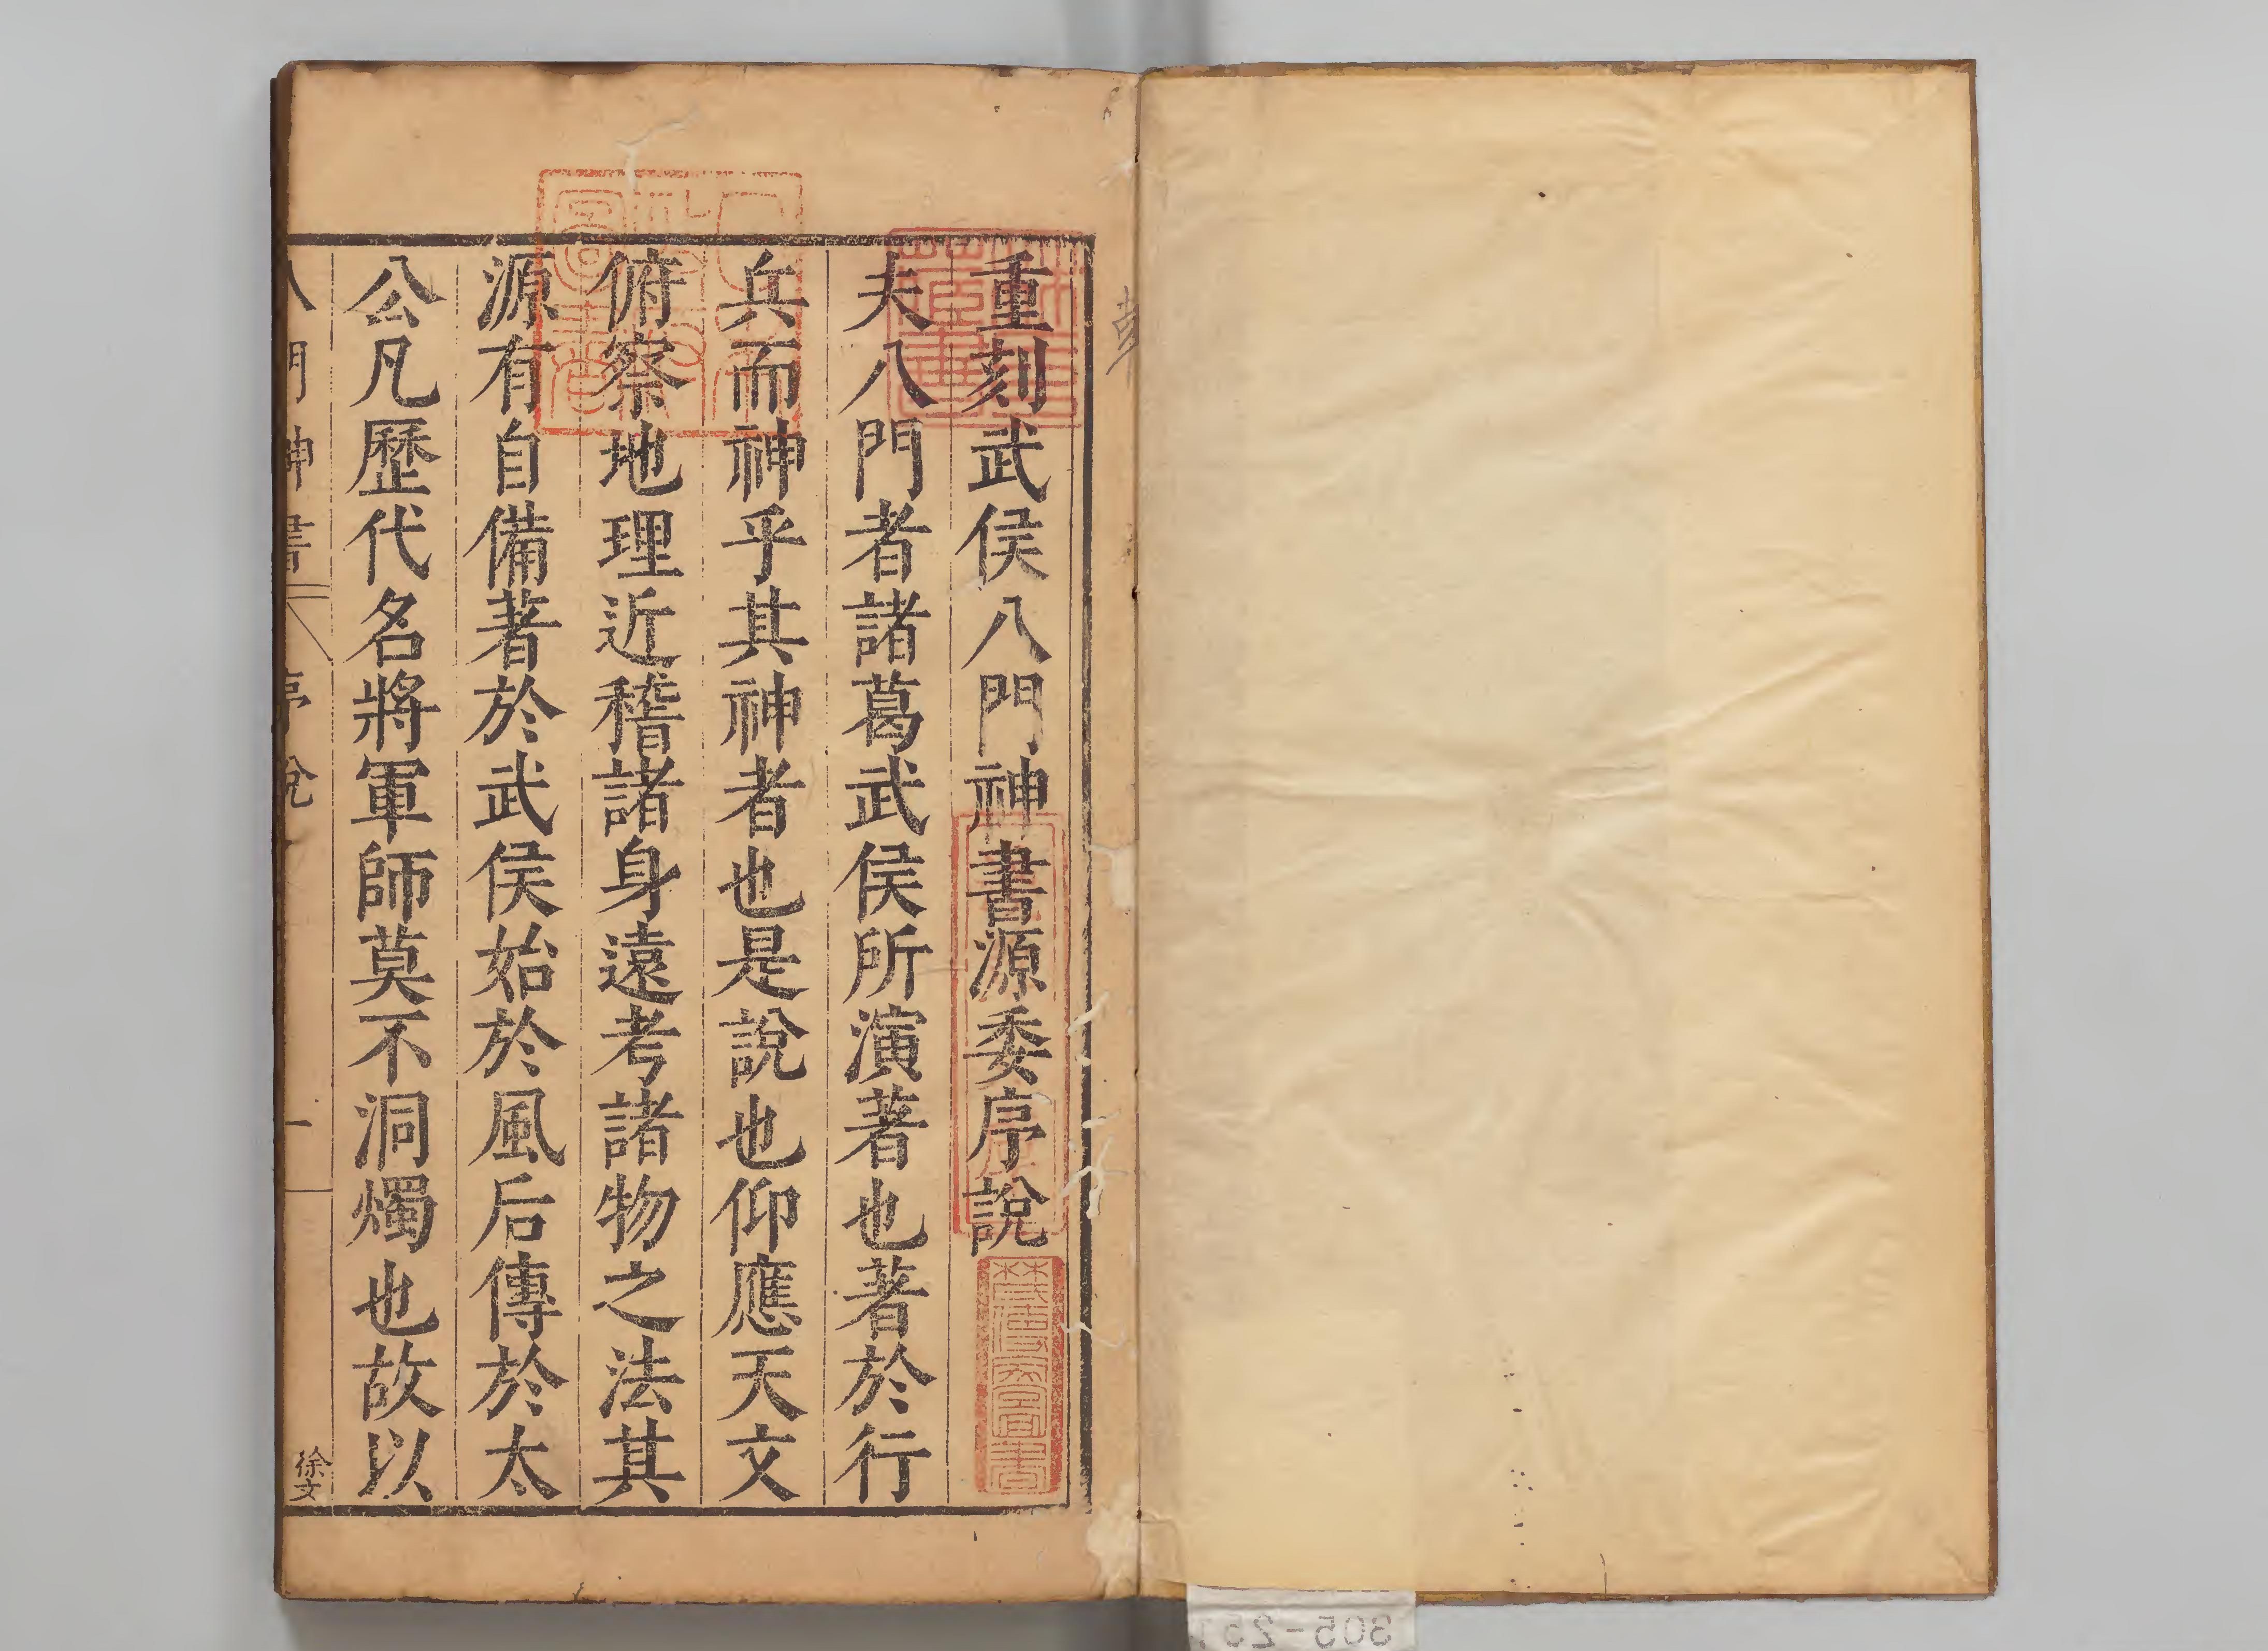 重刻武侯八門神書源委序說
夫八門者諸葛武侯所演著也著於行
兵而神乎其神者也是說也仰應天文
俯察地理近稽諸身遠考諸物之法其
源有自備著於武侯始於風后傳於太
公凡歷代名將軍師莫不洞燭也故以
八門神書 序說 一
徐文
305-25